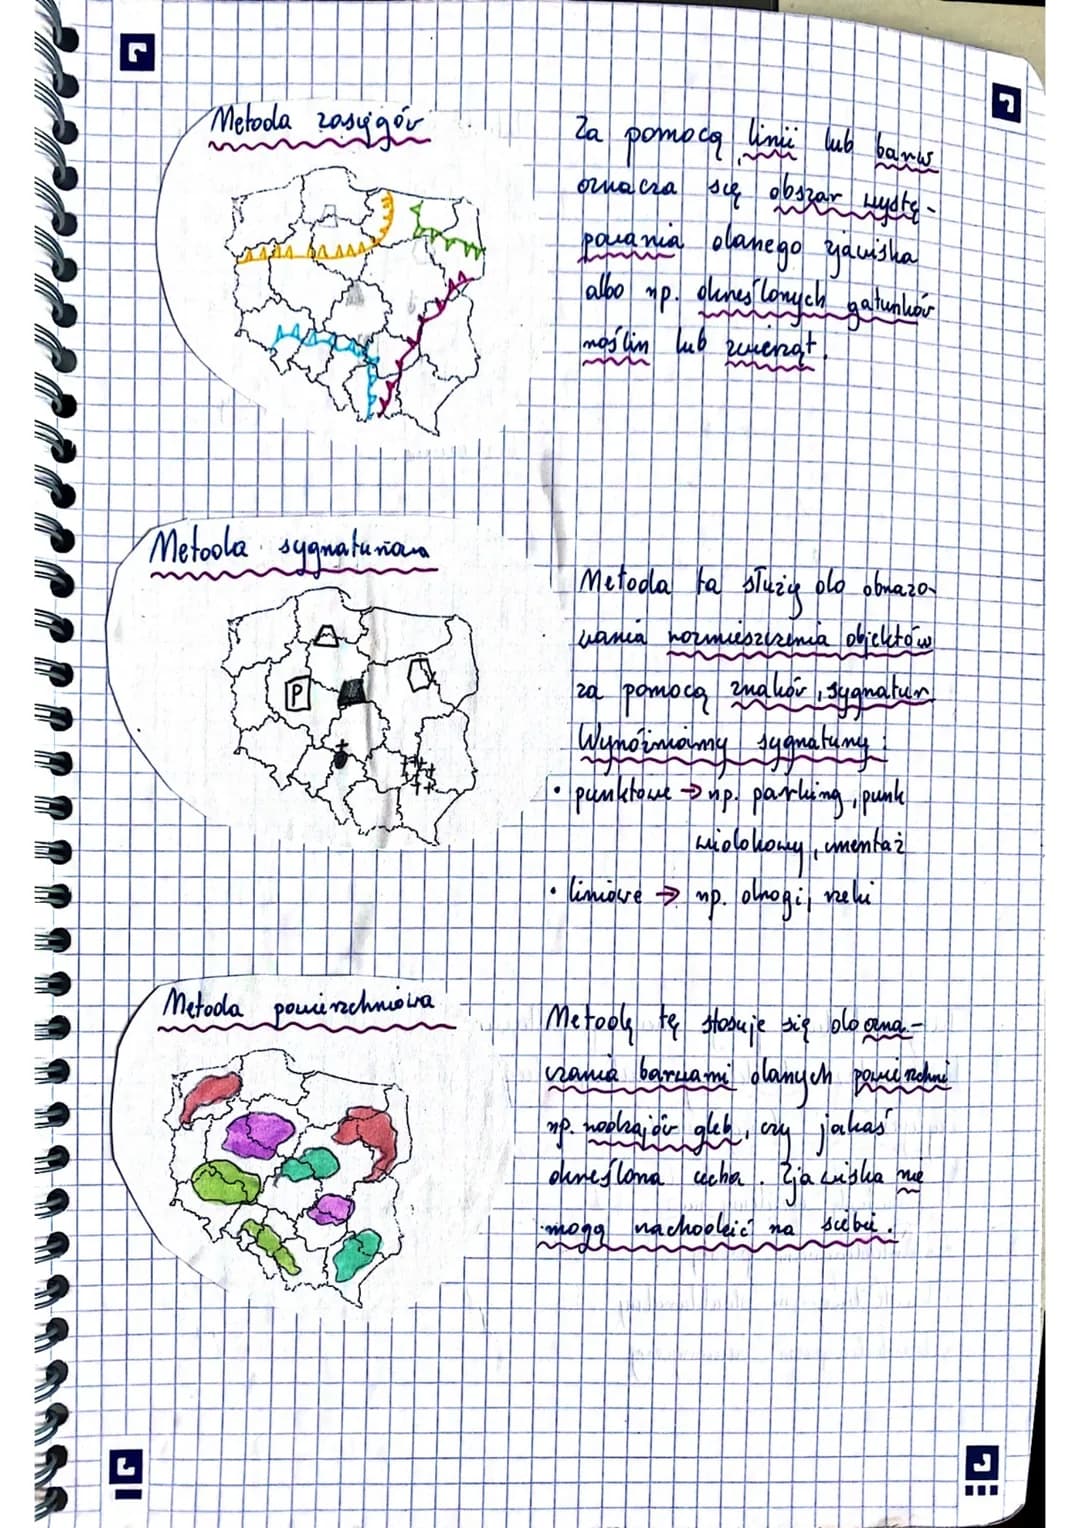 Metoda zasięgów
Za pomocą linii lub barw
oznacza się obszar wystę-
powania danego zjawiska
albo np. określonych gatunków
roślin lub zwierząt.
Metoda sygnaturowa
P
Metoda ta służy do obrazo-
wania rozmieszczenia objektów
za pomocą znaków, sygnatur
Wyróżniamy sygnatury:
• punktowe → np. parking, punk
widokowy, cmentaż
• liniowe → np. drogi, rzeki
Metoda powierzchniowa
Metodę tę stosuje się do ozna-
czania barwami danych powierzchni
np. rodzajów gleb, czy jakaś
określona cecha. Zjawiska nie
mogą nachodzić na siebie.